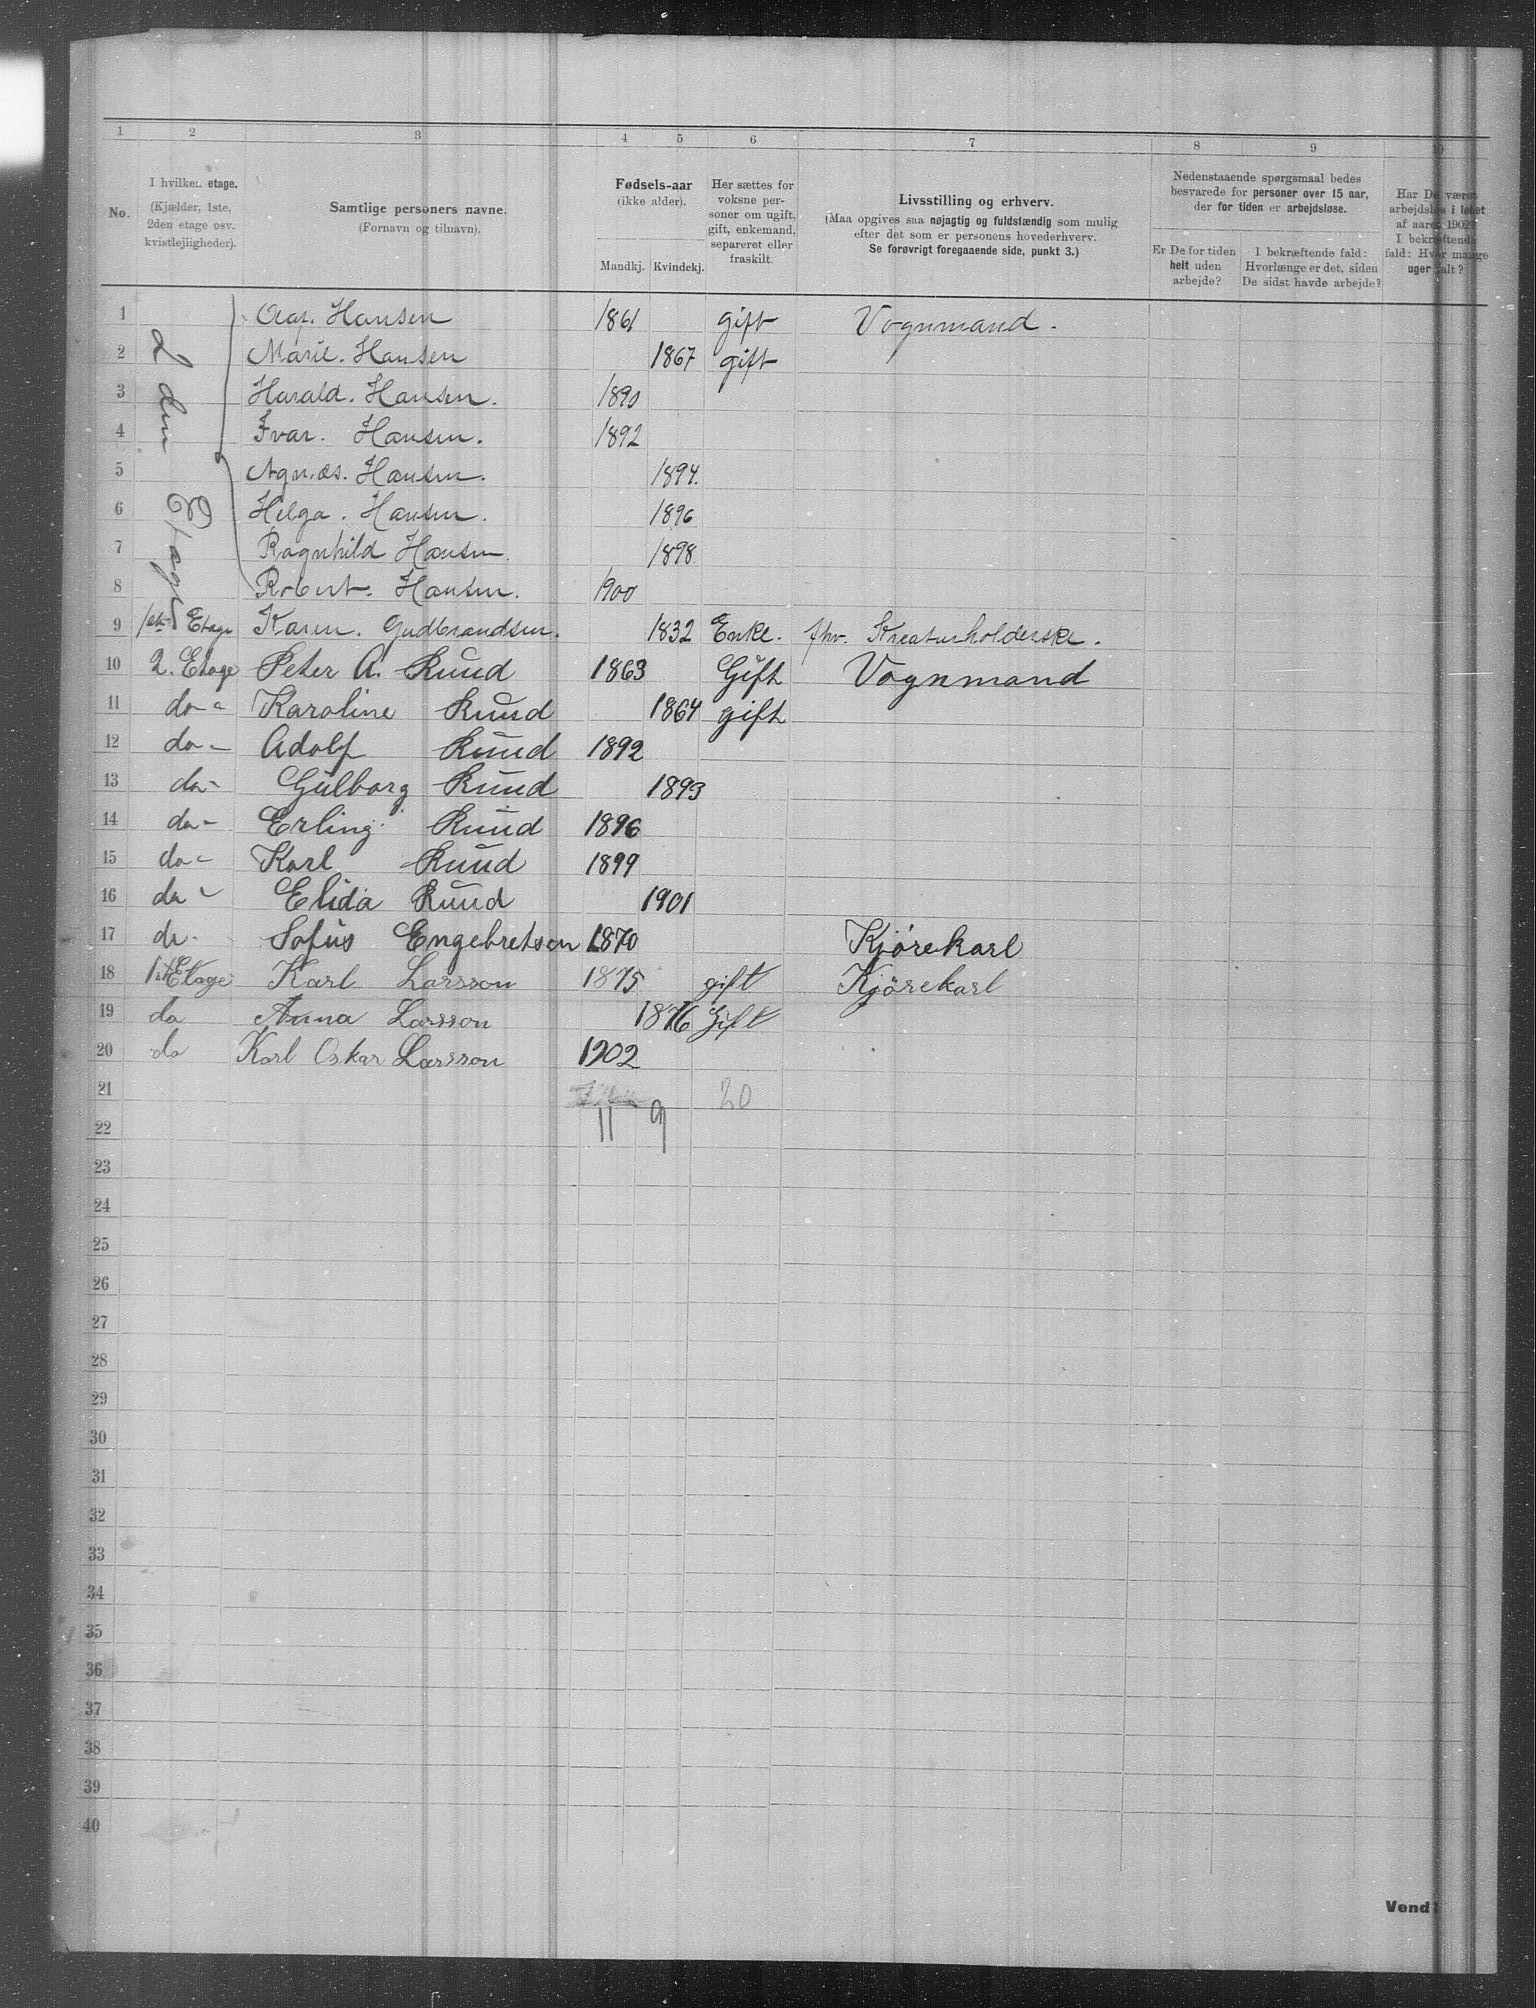 1 2 3 4 5 6 7 8 9 10
No.
I hvilken etage.
(Kjælder, 1ste, 2den etage osv. kvistlejligheder).
Samtlige personers navne.
(Fornavn og tilnavn).
Fødsels-aar
(ikke alder).
Mandkj. Kvindekj.
Her sættes for voksne personer om ugift, gift, enkemand, separeret eller fraskilt.
Livsstilling og erhverv.
(Maa opgives saa nøjagtig og fuldstændig som mulig
efter det som er personens hovederhverv.
Se forøvrigt foregaaende side, punkt 3.)
Nedenstaaende spørgsmaal bedes
besvarede for personer over 15 aar,
der for tiden er arbejdsløse.
Er De for tiden
helt uden
arbejde?
I bekræftende fald:
Hvorlænge er det, siden
De sidst havde arbejde?
Har De været
arbejdsløs i løbet
af aaret 1902?
I bekræftende
fald: Hvor mange
uger ialt?
2den Etage
1 Hansen 1861 gift Vognmand.
2 Marie. Hansen 1867 gift
3 Harald. Hansen. 1890
4 Ivar. Hansen. 1892
5 Agnæs. Hansen. 1894.
6 Helga. Hansen. 1896
7 Ragnhild Hansen. 1898.
8 Robert. Hansen. 1900
9 1ste Etage Karen. Gudbrandsen. 1832 Enke. fhv. Kreaturholderske.
10 2. Etage Peter A. Ruud 1863 Gift Vognmand
11 do - Karoline Ruud 1864 gift
12 do - Adolf Ruud 1892
13 do - Gulborg Ruud 1893
14 do - Erling Ruud 1896
15 do - Karl Ruud 1899
16 do - Elida Ruud 1901
17 do - Sofus Engebretson 1870 Kjörekarl
18 1st Etage Karl Larsson 1875 gift Kjörekarl
19 do Anna Larsson 1876 Gift
20 do Karl Oskar Larsson 1902
21 20
22 11 9
23
24
25
26
27
28
29
30
31
32
33
34
35
36
37
38
39
40
Vend!